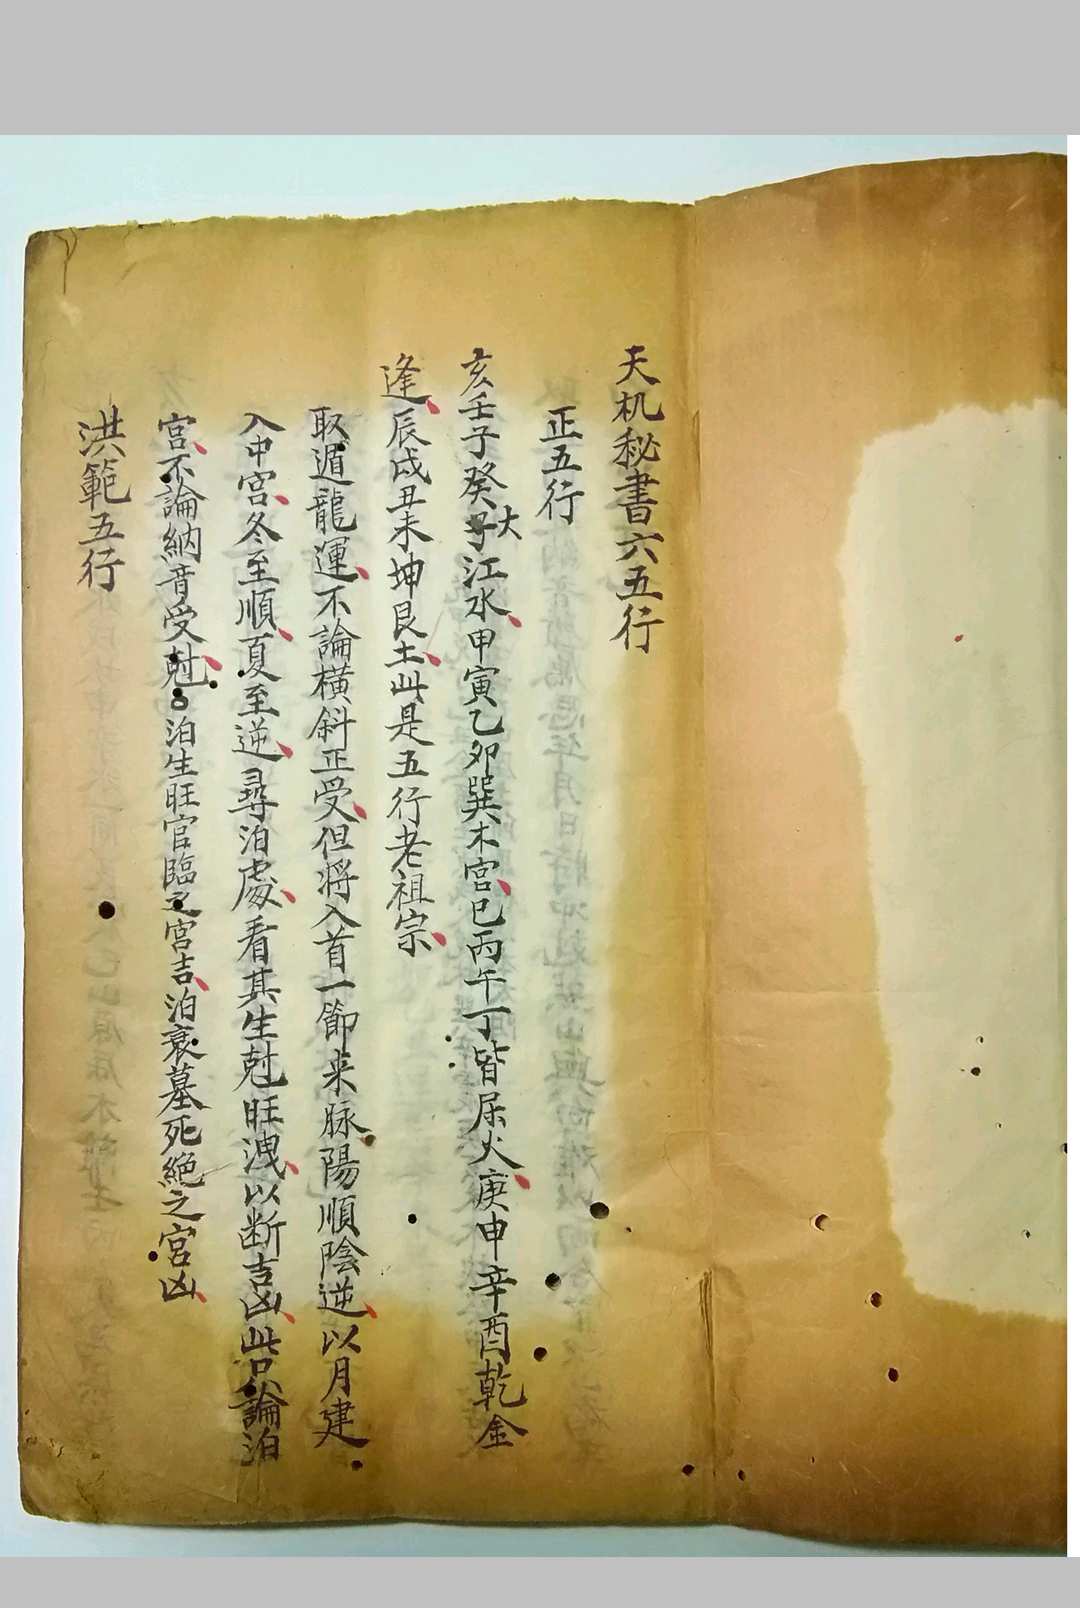 天机秘書六五行
正五行
亥壬子癸大江水甲寅乙卯巽木宮巳丙午丁皆屬火庚申辛酉乾金
逢辰戌丑未坤艮土此是五行老祖宗
取遁龍運不論橫斜正受但将入首一節来脉陽順陰逆以月建
入中宮冬至順夏至逆尋泊處看其生尅旺洩以断吉凶此只論泊
宮不論納音受尅○泊生旺官臨之宮吉泊衰墓死絕之宮凶
洪範五行